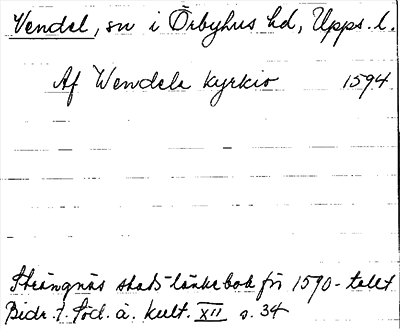 Vendel, sn i Örbyhus hd, Upps. l.
Af Wendela kyrkio 1594
Strängnäs stads tänkebok för 1590-talet
Bidr. t. Söd. ä. kult. XII s. 34